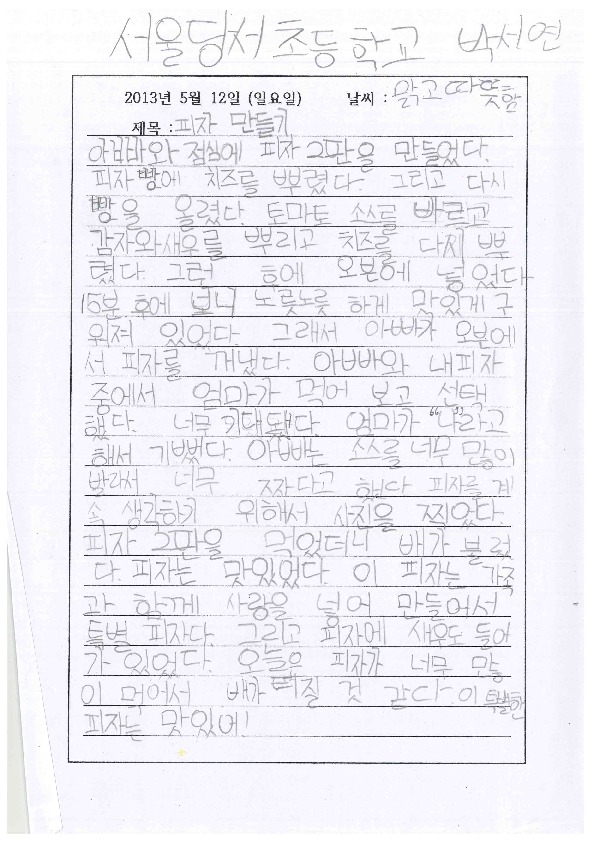 서울당서초등학교 박서연
2013년 5월 12일 (일요일) 날씨 : 맑고 따뜻함
제목 : 피자 만들기
아빠와 점심에 피자 2판을 만들었다.
피자 빵에 치즈를 뿌렸다. 그리고 다시
빵을 올렸다. 토마토 쏘쓰를 빠르고
감자와새우를 뿌리고 치즈를 다시 뿌
렸다. 그런 후에 오븐에 넣었다
15분 후에 보니 노릇노릇 하게 맛있게 구
워져 있었다. 그래서 아빠가 오븐에
서 피자를 꺼냈다. 아빠와 내피자
중에서 엄마가 먹어 보고 선택
했다. 너무 기대됐다. 엄마가 “나”라고
해서 기뻤다. 아빠는 쏘스를 너무 많이
발라서 너무 짜다고 했다 피자를 계
속 생각하기 위해서 사진을 찍었다.
피자 2판을 먹었더니 배가 불렀
다. 피자는 맛있었다. 이 피자는 가족
과 함께 사랑을 넣어 만들어서
특별 피자다. 그리고 피자에 새우도 들어
가 있었다. 오늘은 피자가 너무 많
이 먹어서 배가 터질 것 같다. 이 특별한
피자는 맛있어!